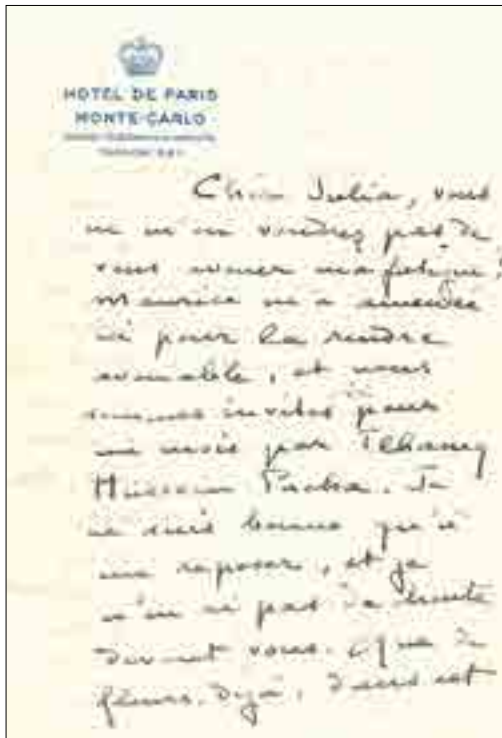 HOTEL DE PARIS
MONTE-CARLO
Chère Julia, vous
ne m'en voudrez pas de
vous avouer ma fatigue?
Maurice m'a amenée
ici pour la rendre
avouable, et nous
sommes invités pour
un mois par
Pacha. Je
ne suis bonne qu'à
me reposer, et je
n'en ai pas de honte
devant vous. Que de
fleurs, déjà, dans cet